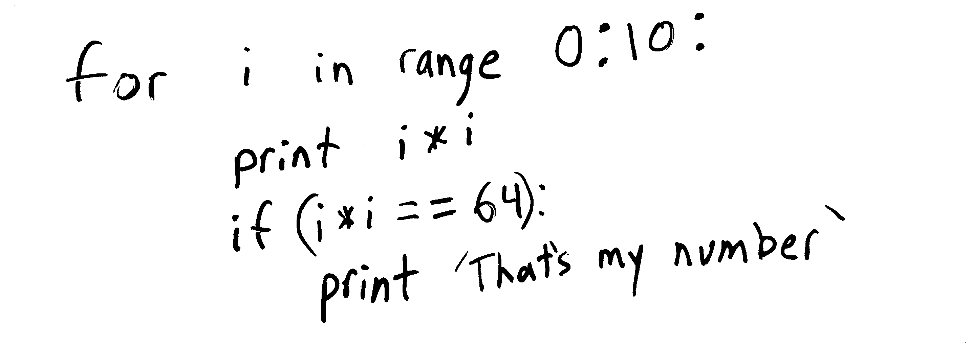 for i in range 0:10:
print i*i
if (i*i == 64):
print 'That's my number`